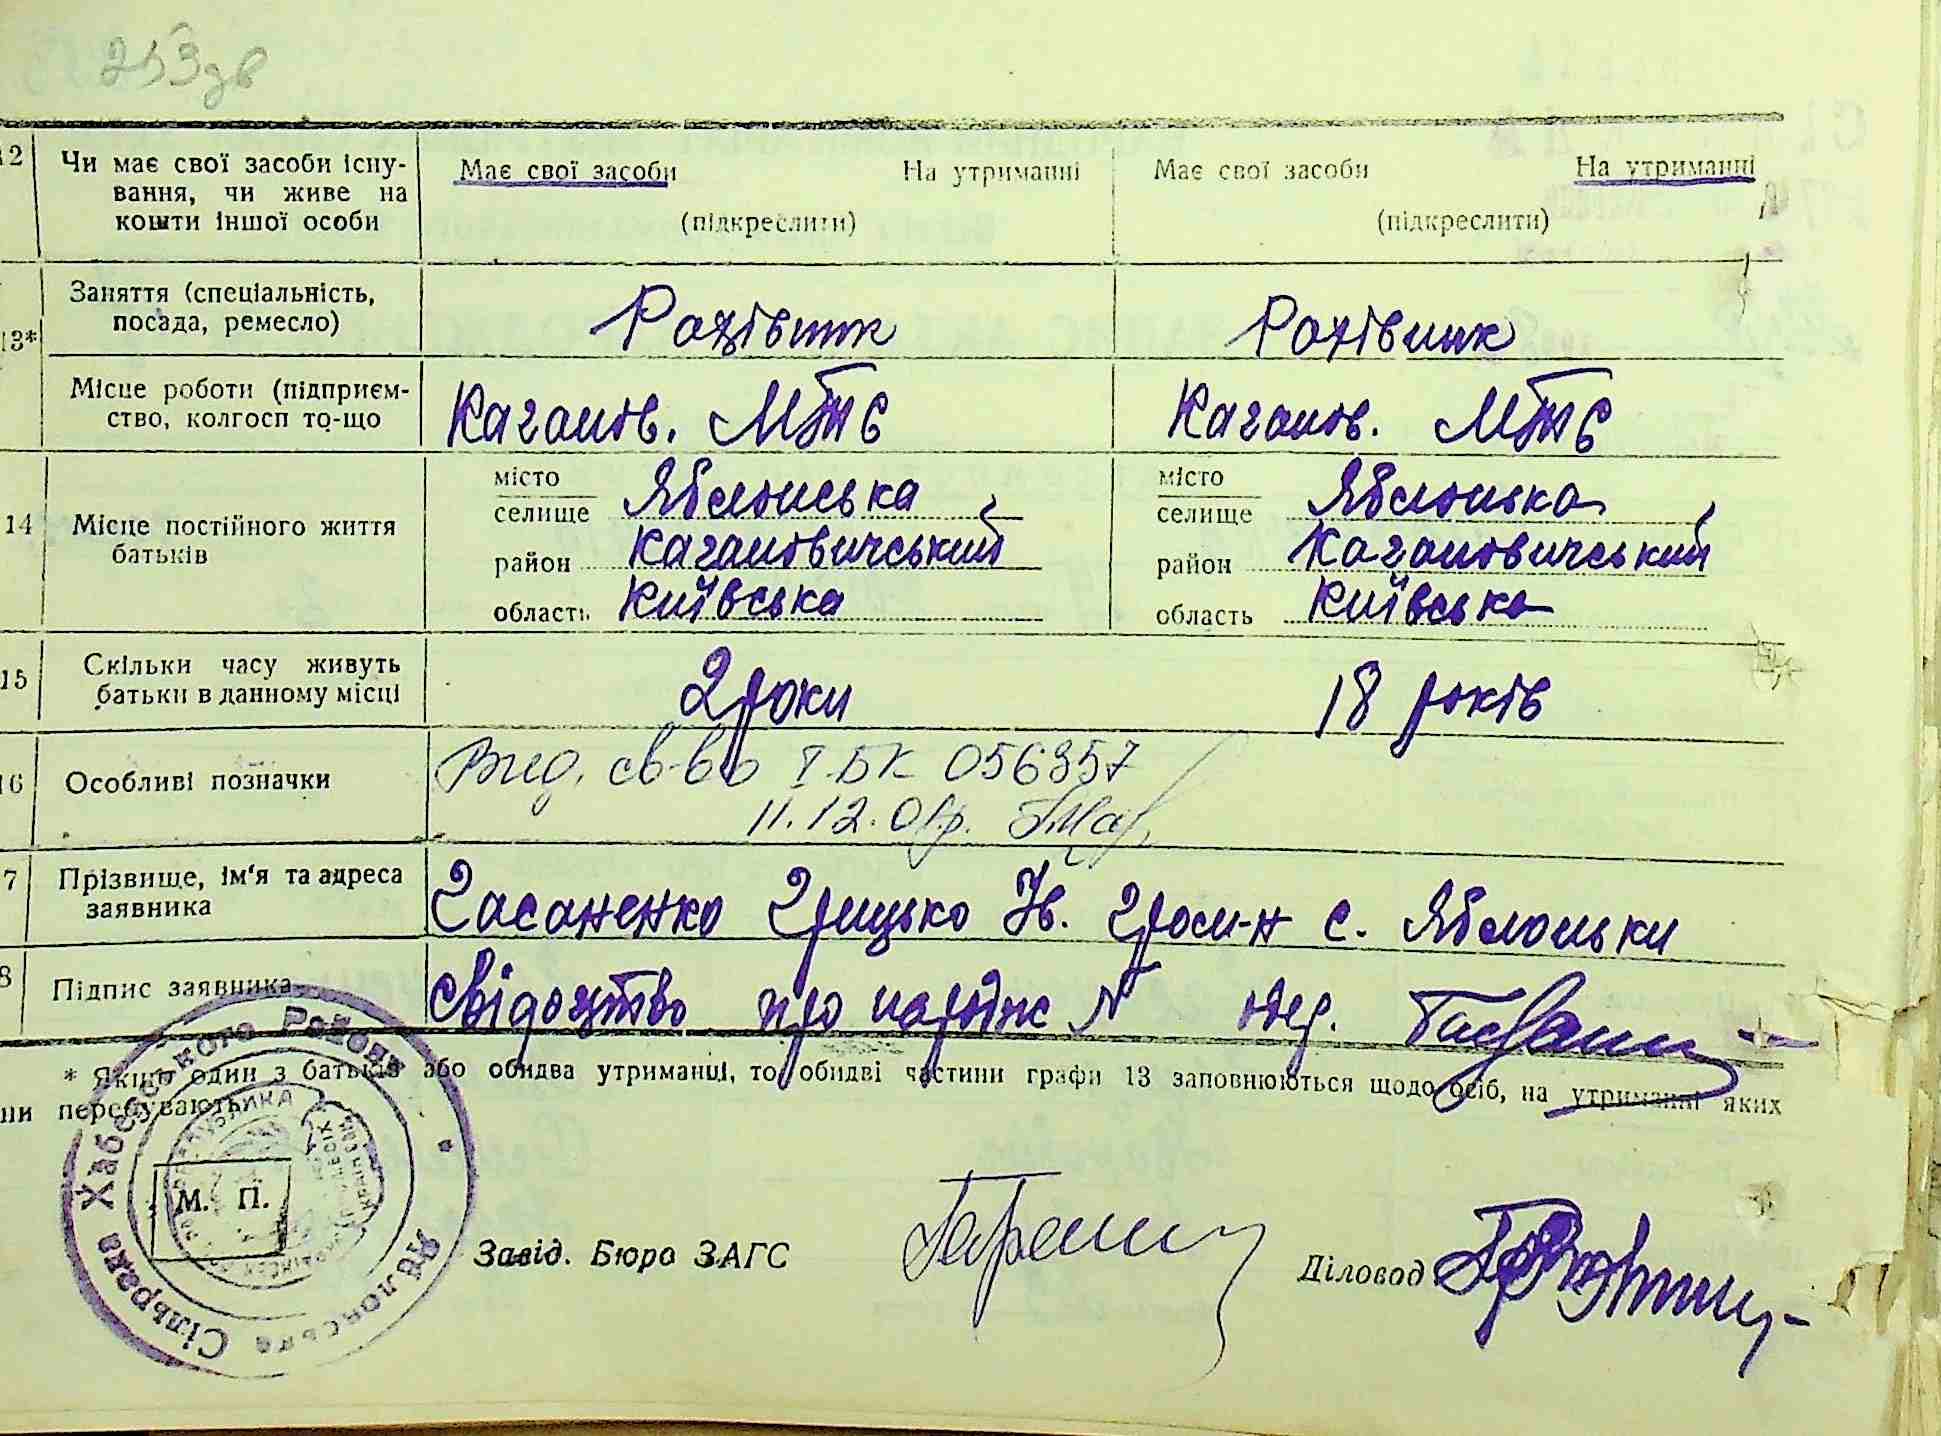 253зв
12 Чи має свої засоби існу- Має свої засоби На утриманні Має свої засоби На утриманні
вання, чи живе на
кошти іншої особи (підкреслити) (підкреслити)
Заняття (спеціальність,
посада, ремесло)
13* Робівник Робівник
Місце роботи (підприєм- Каганов. МТС Каганов. МТС
ство, колгосп то-що
місто Яблонська місто Яблонька
селище селище
14 Місце постійного життя
батьків район Кагановичський район Кагановичський
область Київська область Київська
15 Скільки часу живуть 2 роки 18 років
батьки в данному місці
16 Особливі позначки Вид. св-во І-БК 056357
11.12.01р.
7 Прізвище, ім'я та адреса Гасаненко Грицько Ів. гром-н с. Яблоньки
заявника
8 Підпис заявника Свідоцтво про народж N
* Якщо один з батьків або обидва утриманці, то обидві частини графи 13 заповнюються щодо осіб, на утриманні яких
ни перебувають
Яблонська Сільрада Хабенського Району
М. П.
Завід. Бюро ЗАГС Діловод